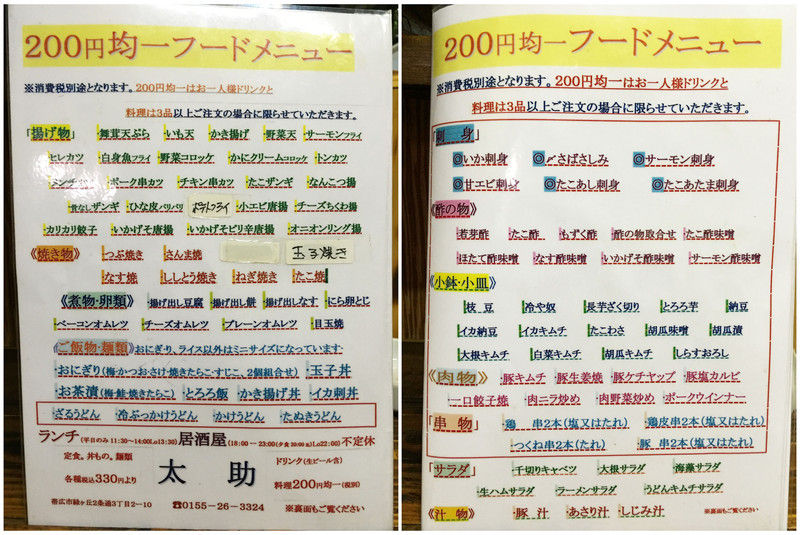 200円均一フードメニュー
※消費税別途となります。200円均一はお一人様ドリンクと
料理は3品以上ご注文の場合に限らせていただきます。
「揚げ物」 舞茸天ぷら いも天 かき揚げ 野菜天 サーモンフライ
ヒレカツ 白身魚フライ 野菜コロッケ かにクリームコロッケ トンカツ
メンチカツ ポーク串カツ チキン串カツ たこザンギ なんこつ揚
骨なしザンギ ひな皮パリパリ ポテトフライ 小エビ唐揚 チーズちくわ揚
カリカリ餃子 いかげそ唐揚 いかげそピリ辛唐揚 オニオンリング揚
《焼き物》 つぶ焼き さんま焼 玉子焼き
なす焼 ししとう焼き ねぎ焼き たこ焼
《煮物・卵類》 揚げ出し豆腐 揚げ出し餅 揚げ出しなす にら卵とじ
ベーコンオムレツ チーズオムレツ プレーンオムレツ 目玉焼
「ご飯物・麺類」おにぎり、ライス以外はミニサイズになっています
おにぎり(梅・かつおさけ・焼きたらこ・すじこ、2個組合せ) 玉子丼
お茶漬(梅・鮭・焼きたらこ) とろろ飯 かき揚げ丼 イカ刺丼
ざるうどん 冷ぶっかけうどん かけうどん たぬきうどん
ランチ(平日のみ 11:30～14:00Lo13:30) 居酒屋(18:00～23:00(夕食20:00迄)Lo22:00) 不定休
定食。丼もの。麺類
各種税込330円より
太 助
ドリンク(生ビール含)
料理200円均一(税別)
帯広市緑ヶ丘2条通3丁目2～10 ☎0155-26-3324 ※裏面もご覧ください
200円均一フードメニュー
※消費税別途となります。200円均一はお一人様ドリンクと
料理は3品以上ご注文の場合に限らせていただきます。
「刺 身」
◎いか刺身 ◎〆さばさしみ ◎サーモン刺身
◎甘エビ刺身 ◎たこあし刺身 ◎たこあたま刺身
《酢の物》
若芽酢 たこ酢 もずく酢 酢の物取合せ たこ酢味噌
ほたて酢味噌 なす酢味噌 いかげそ酢味噌 サーモン酢味噌
《小鉢・小皿》
枝豆 冷や奴 長芋ざく切り とろろ芋 納豆
イカ納豆 イカキムチ たこわさ 胡瓜味噌 胡瓜漬
大根キムチ 白菜キムチ 胡瓜キムチ しらすおろし
《肉物》 豚キムチ 豚生姜焼 豚ケチャップ 豚塩カルビ
一口餃子焼 肉ニラ炒め 肉野菜炒め ポークウインナー
「串 物」 鶏 串2本(塩又はたれ) 鶏皮串2本(塩又はたれ)
つくね串2本(たれ) 豚 串2本(塩又はたれ)
「サラダ」 千切りキャベツ 大根サラダ 海藻サラダ
生ハムサラダ ラーメンサラダ うどんキムチサラダ
《汁 物》 豚汁 あさり汁 しじみ汁 ※裏面もご覧ください